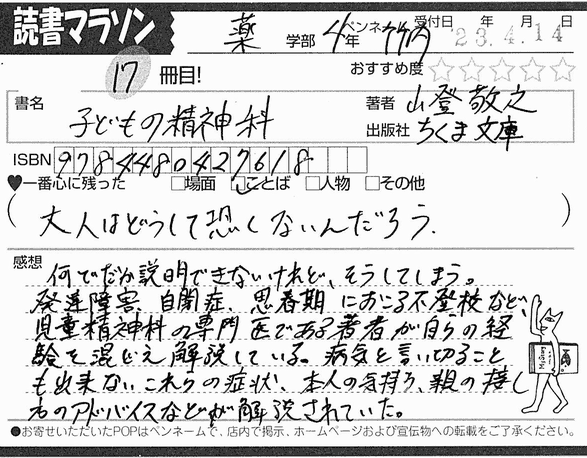 読書マラソン
薬 学部 4年 ペンネーム 竹内 受付日 年 月 日
23.4.14
17 冊目! おすすめ度 ☆☆☆☆☆
書名 子どもの精神科
著者 山登敬之
出版社 ちくま文庫
ISBN 9784480427618
♥一番心に残った □場面 ☑ことば □人物 □その他
(大人はどうして恐くないんだろう.)
感想
何でだか説明できないけれど、そうしてしまう。
発達障害、自閉症、思春期におこる不登校など、
児童精神科の専門医である著者が自らの経
験を混じえ解説している。病気と言い切ること
も出来ないこれらの症状、本人の気持ち、親の接し
方のアドバイスなどが解説されていた。
●お寄せいただいたPOPはペンネームで、店内で掲示、ホームページおよび宣伝物への転載をご了承ください。